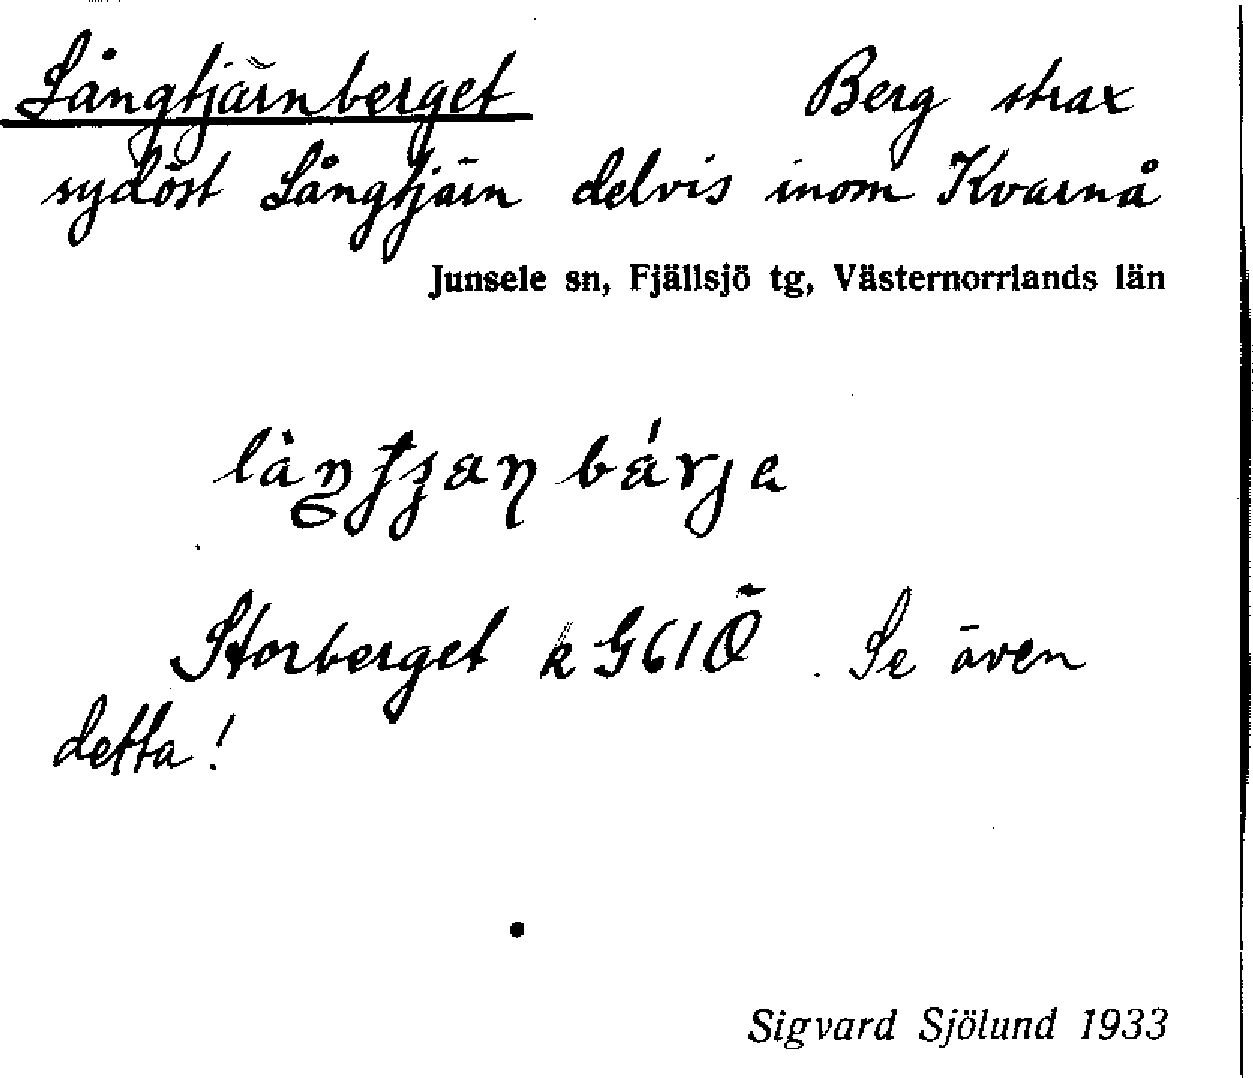 Långtjärnberget Berg strax
sydöst Långtjärn delvis inom Kvarnå
Junsele sn, Fjällsjö tg, Västernorrlands län
Storberget k G61Ö. Se även
detta!
Sigvard Sjölund 1933